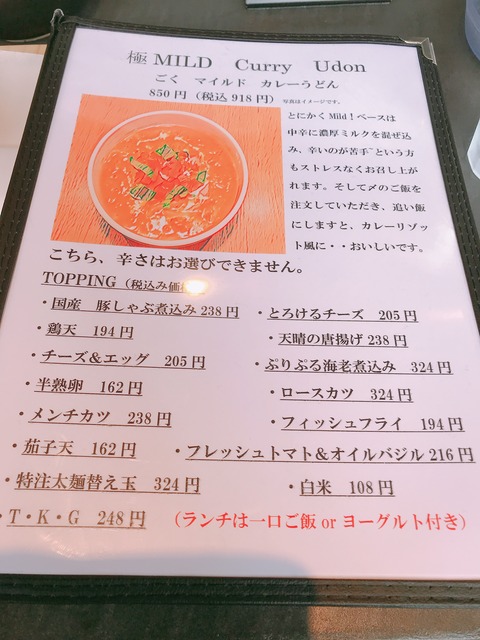 極MILD Curry Udon
ごく マイルド カレーうどん
850円(税込918円) 写真はイメージです。
とにかくMild!ベースは
中辛に濃厚ミルクを混ぜ込
み、辛いのが苦手~という方
もストレスなくお召し上が
れます。そして〆のご飯を
注文していただき、追い飯
にしますと、カレーリゾッ
ト風に・・おいしいです。
こちら、辛さはお選びできません。
TOPPING(税込み価
・国産 豚しゃぶ煮込み 238円
・とろけるチーズ 205円
・鶏天 194円
・天晴の唐揚げ 238円
・チーズ&エッグ 205円
・ぷりぷる海老煮込み 324円
・半熟卵 162円
・ロースカツ 324円
・メンチカツ 238円
・フィッシュフライ 194円
・茄子天 162円
・フレッシュトマト&オイルバジル 216円
・特注太麺替え玉 324円
・白米 108円
・T・K・G 248円
(ランチは一口ご飯 or ヨーグルト付き)